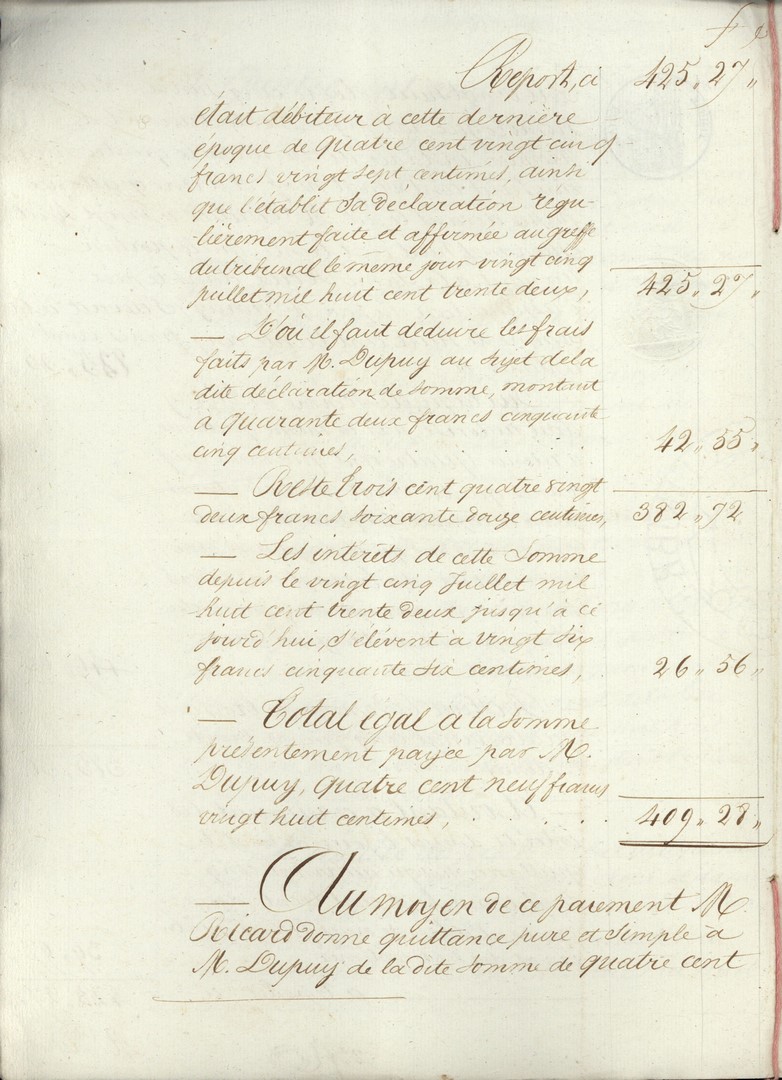 f c
Report, ci 425 " 27 "
était débiteur à cette dernière
époque de quatre cent vingt cinq
francs vingt sept centimes, ainsi
que l'établit sa déclaration régu-
-lièrement faite et affirmée au greffe
du tribunal le même jour vingt cinq
juillet mil huit cent trente deux, 425 " 27 "
— D'où il faut déduire les frais
faits par M. Dupuy au sujet de la
dite déclaration de somme, montant
à quarante deux francs cinquante
cinq centimes, . . . . . 42 " 55 "
— Reste trois cent quatre vingt
deux francs soixante douze centimes, 382 " 72
— Les intérêts de cette somme
depuis le vingt cinq Juillet mil
huit cent trente deux jusqu'à ce
jourd'hui, s'élèvent à vingt six
francs cinquante six centimes, 26 " 56 "
— Total égal à la somme
présentement payée par M.
Dupuy, quatre cent neuf francs
vingt huit centimes, . . . . . 409 " 28 "
— Au moyen de ce paiement M.
Ricard donne quittance pure et simple à
M. Dupuy de la dite somme de quatre cent